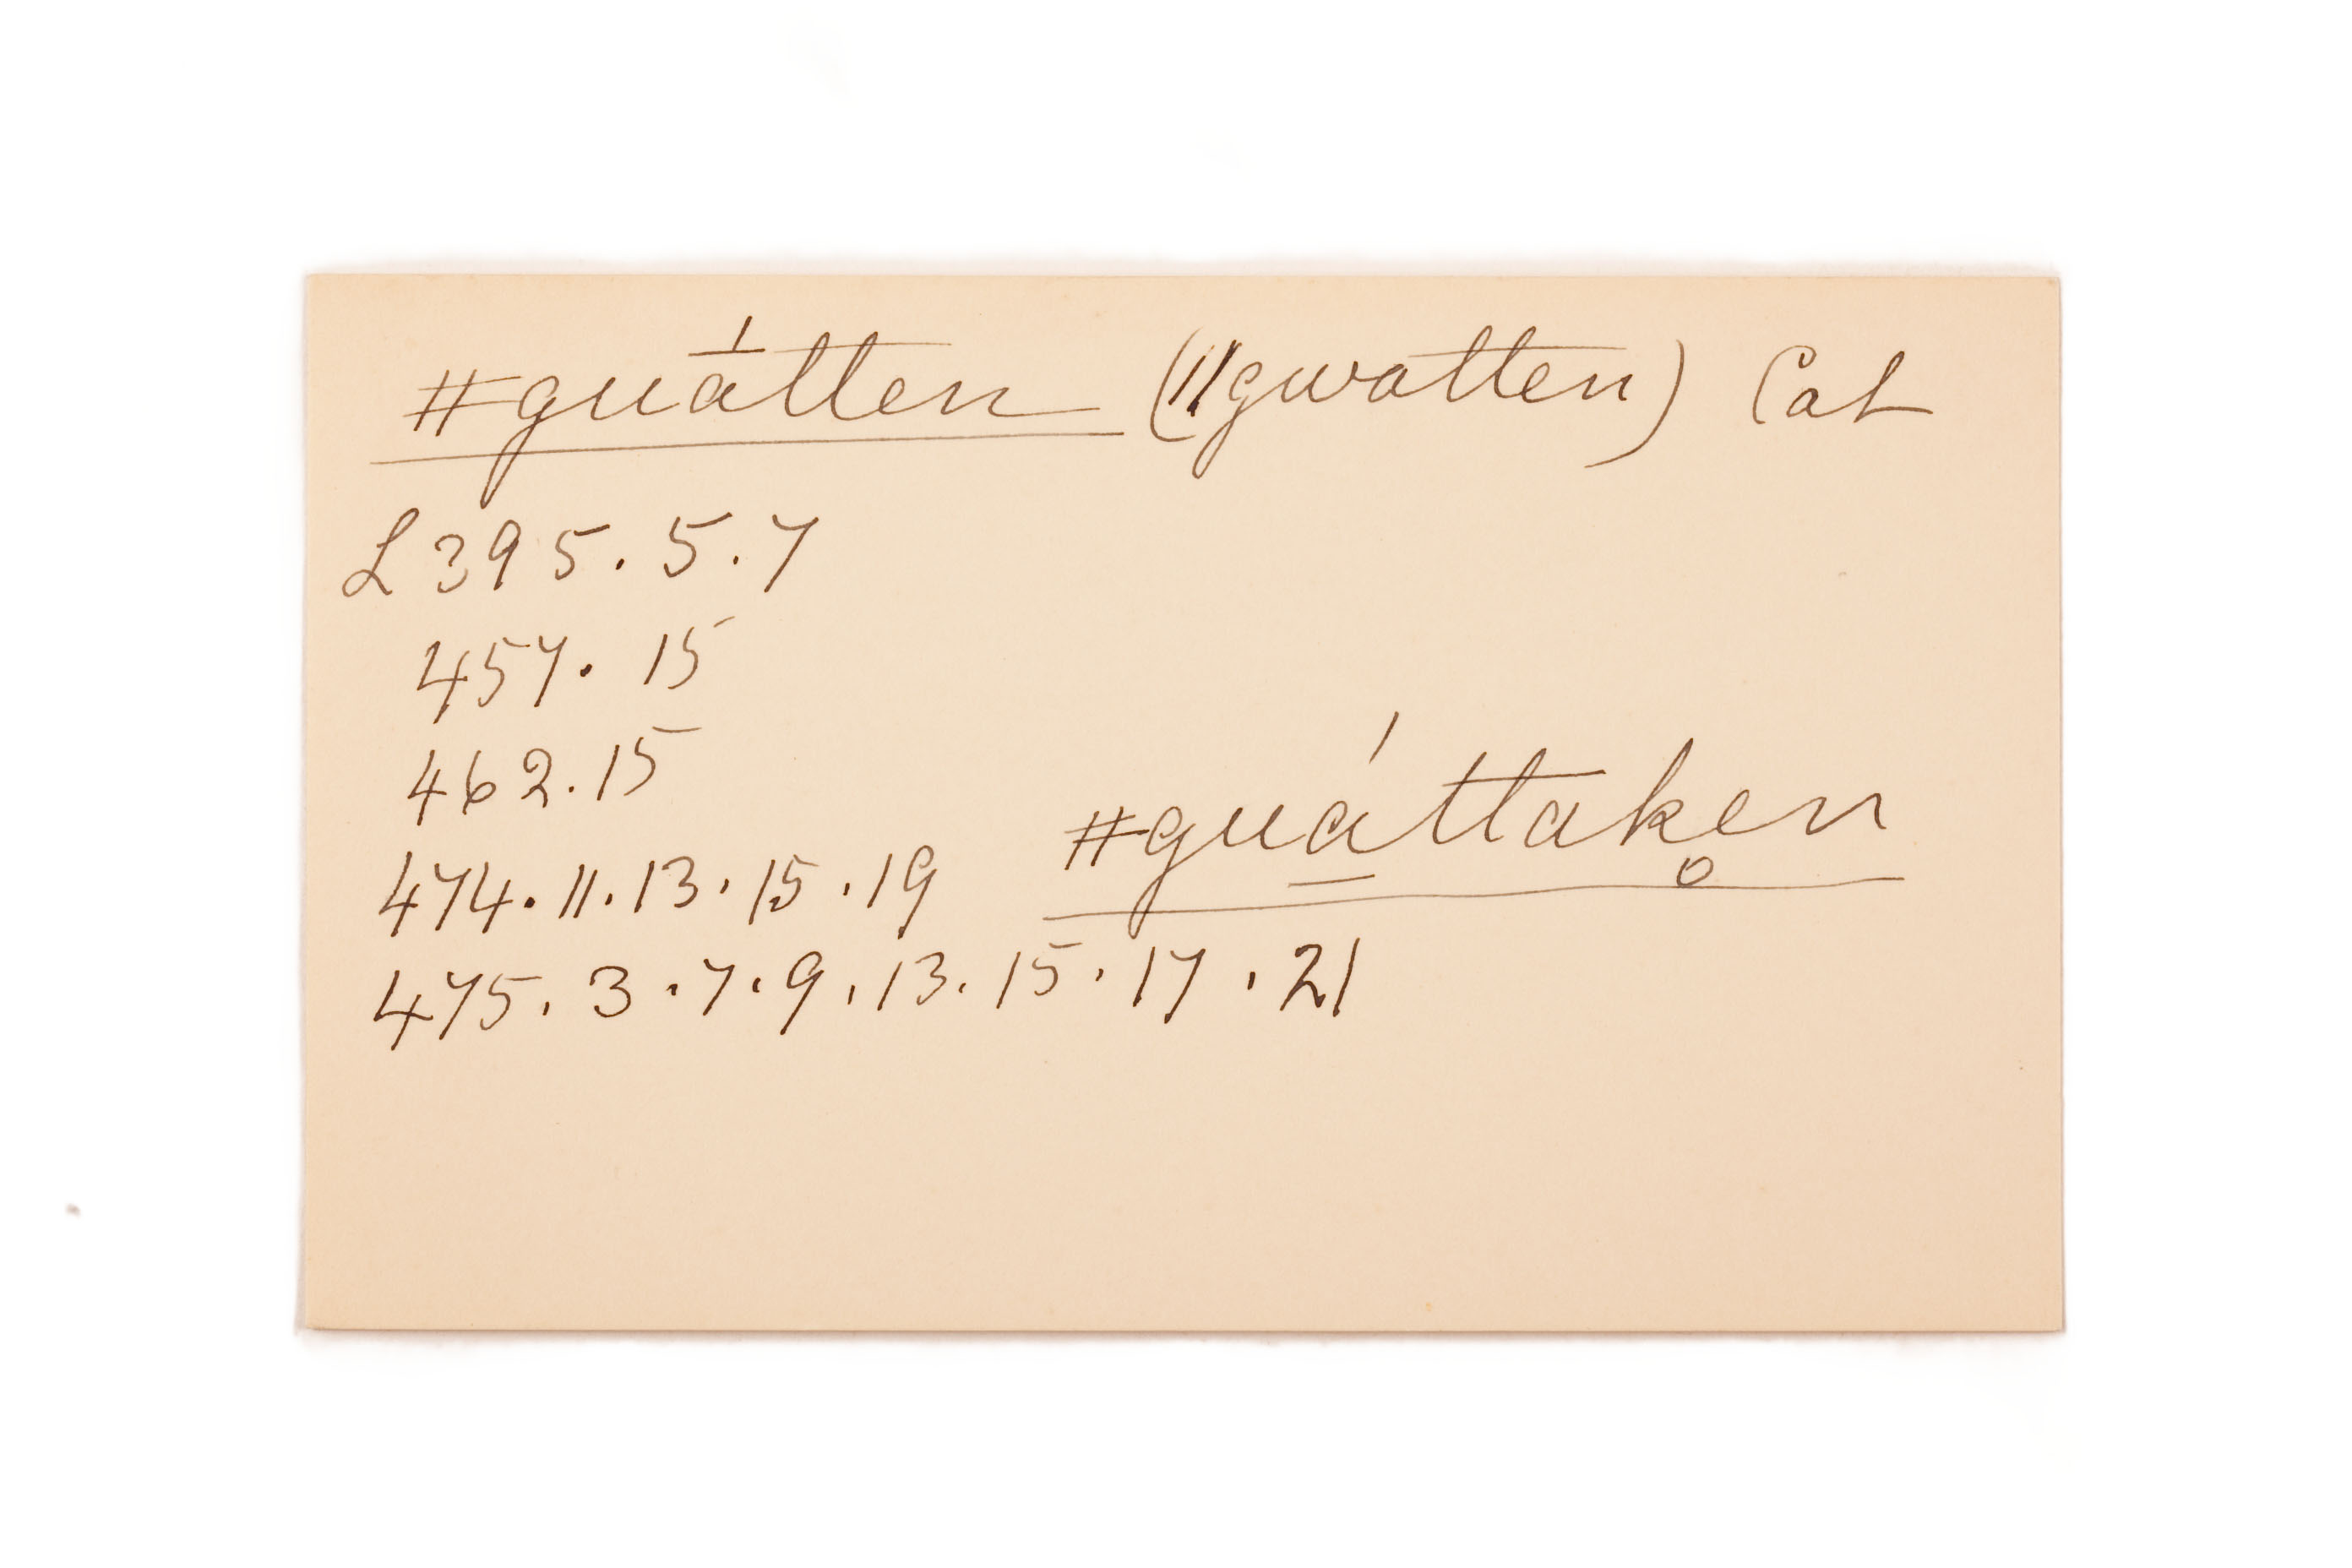 ǂguā́tten (ǁgwatten) Cat
L 395. 5. 7
457. 15
462. 15
474. 11. 13. 15. 19 ǂguá̱ttake̥n
475. 3. 7. 9. 13. 15. 17. 21